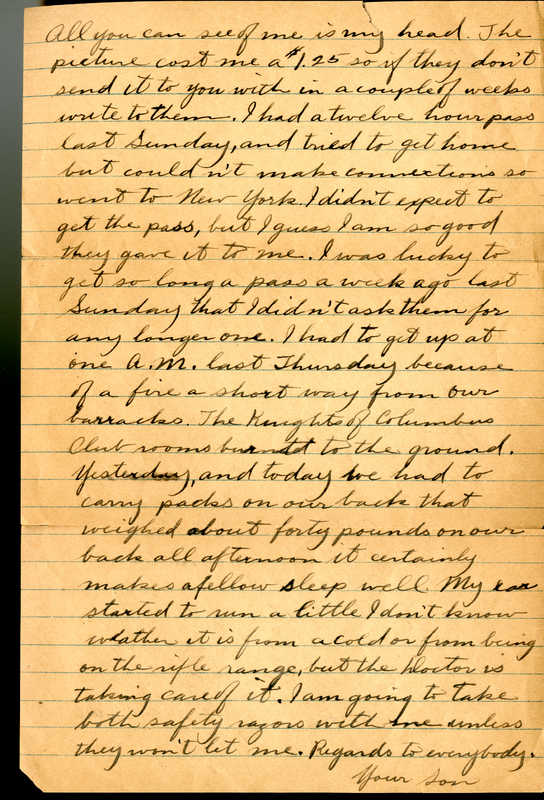 All you can see of me is my head. The
picture cost me a $1.25 so if they don't
send it to you with in a couple of weeks
write to them. I had a twelve hour pass
last Sunday, and tried to get home
but could n't make connections so
went to New York. I didn't expect to
get the pass, but I guess I am so good
they gave it to me. I was lucky to
get so long a pass a week ago last
Sunday that I didn't ask them for
any longer one. I had to get up at
one A.M. last Thursday because
of a fire a short way from our
barracks. The Knights of Columbus
Club rooms burned to the ground.
Yesterday, and today we had to
carry packs on our back that
weighed about forty pounds on our
back all afternoon it certainly
makes a fellow sleep well. My ear
started to run a little I don't know
whather it is from a cold or from being
on the rifle range, but the Doctor is
taking care of it. I am going to take
both safety razors with me unless
they won't let me. Regards to everybody.
Your son